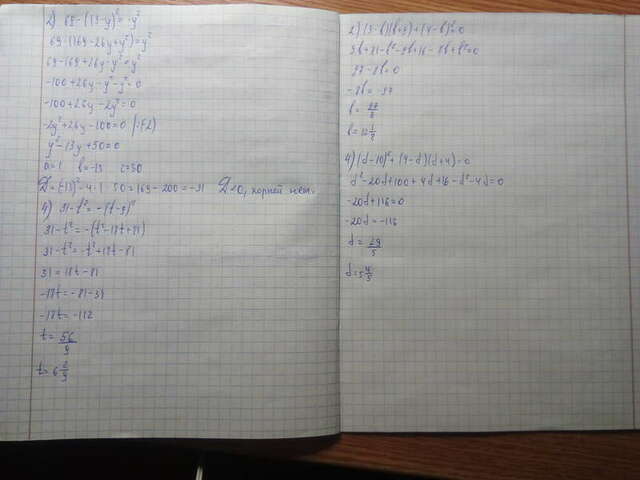 2) 69-(13-y)²=-y²
69-(169-26y+y²)=y²
69-169+26y-y²=y²
-100+26y-y²-y²=0
-100+26y-2y²=0
-2y²+26y-100=0 |:(-2)
y²-13y+50=0
a=1 b=-13 c=50
D=(-13)²-4·1·50=169-200=-31 D<0, корней нет.
4) 31-t²=-(t-9)²
31-t²=-(t²-18t+81)
31-t²=-t²+18t-81
31=18t-81
-18t=-81-31
-18t=-112
t=56/9
t=6 2/9
2) (9-b)(b+9)+(4-b)²=0
9b+81-b²-9b+16-8b+b²=0
97-8b=0
-8b=-97
b=97/8
b=12 1/8
4) (d-10)²+(4-d)(d+4)=0
d²-20d+100+4d+16-d²-4d=0
-20d+116=0
-20d=-116
d=29/5
d=5 4/5